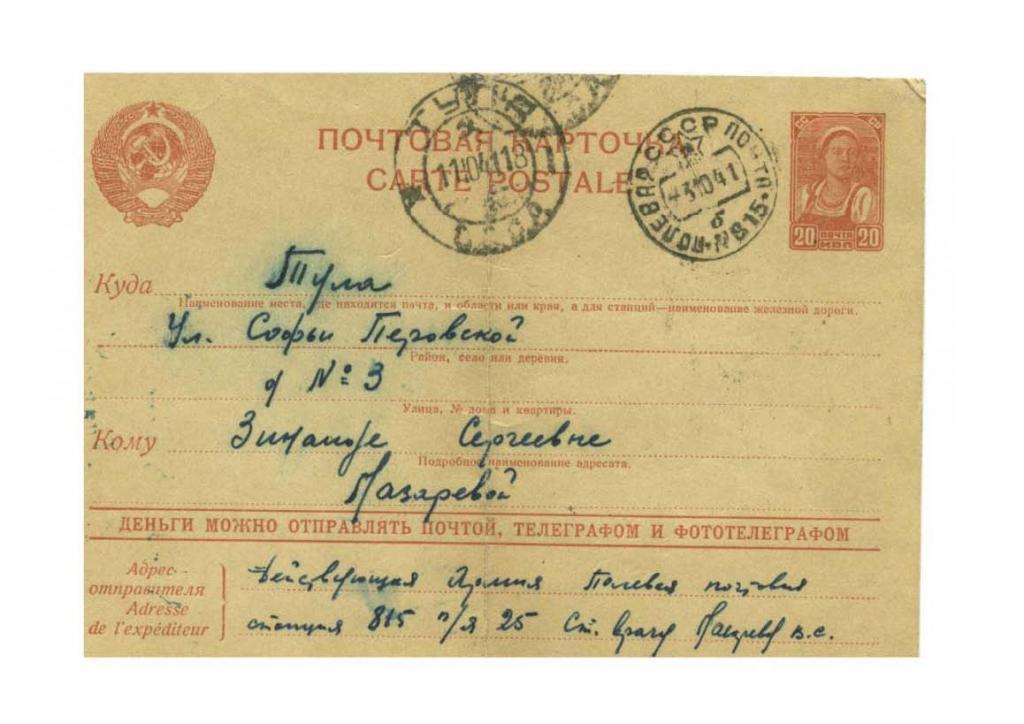 ПОЧТОВАЯ КАРТОЧКА
CARTE POSTALE
ТУЛА
11 10 41 18
СССР
СССР ПОЧТА
3 10 41
б
ПОЛЕВАЯ N 815
СС СР
20 ПОЧТА КОП 20
Куда Тула
Наименование места, где находится почта, и области или края, а для станций—наименование железной дороги.
Ул. Софьи Перовской
Район, село или деревня.
д № 3
Улица, № дома и квартиры.
Кому Зинаиде Сергеевне
Подробное наименование адресата.
Лазаревой
ДЕНЬГИ МОЖНО ОТПРАВЛЯТЬ ПОЧТОЙ, ТЕЛЕГРАФОМ И ФОТОТЕЛЕГРАФОМ
Адрес отправителя
Adresse de l'expéditeur
Действующая Армия Полевая почтовая
станция 815 п/я 25 Ст. врачу Лазареву В.С.